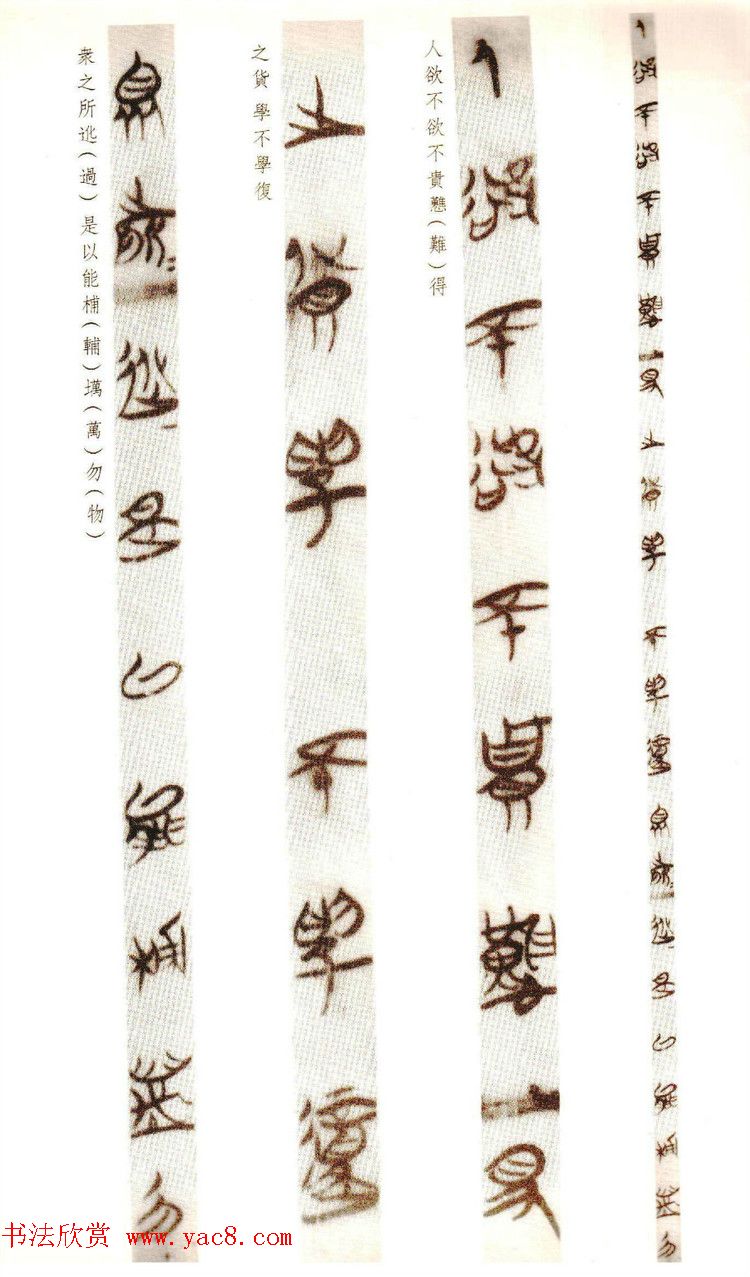 人欲不欲不貴戁(難)得
之貨 學不學復
衆之所迆(過)是以能㭪(輔)𡐦(萬)勿(物)
书法欣赏 www.yac8.com